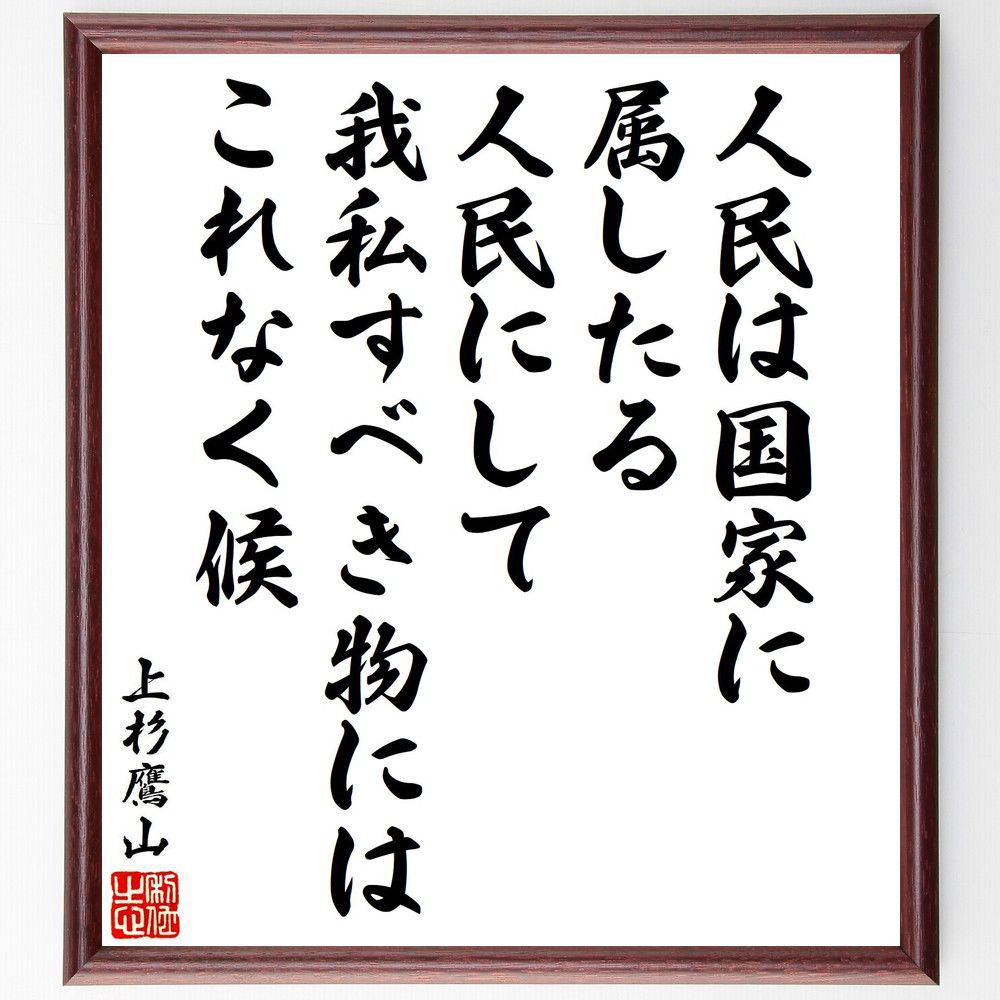 人民は国家に
属したる
人民にして
我私すべき物には
これなく候
上杉鷹山